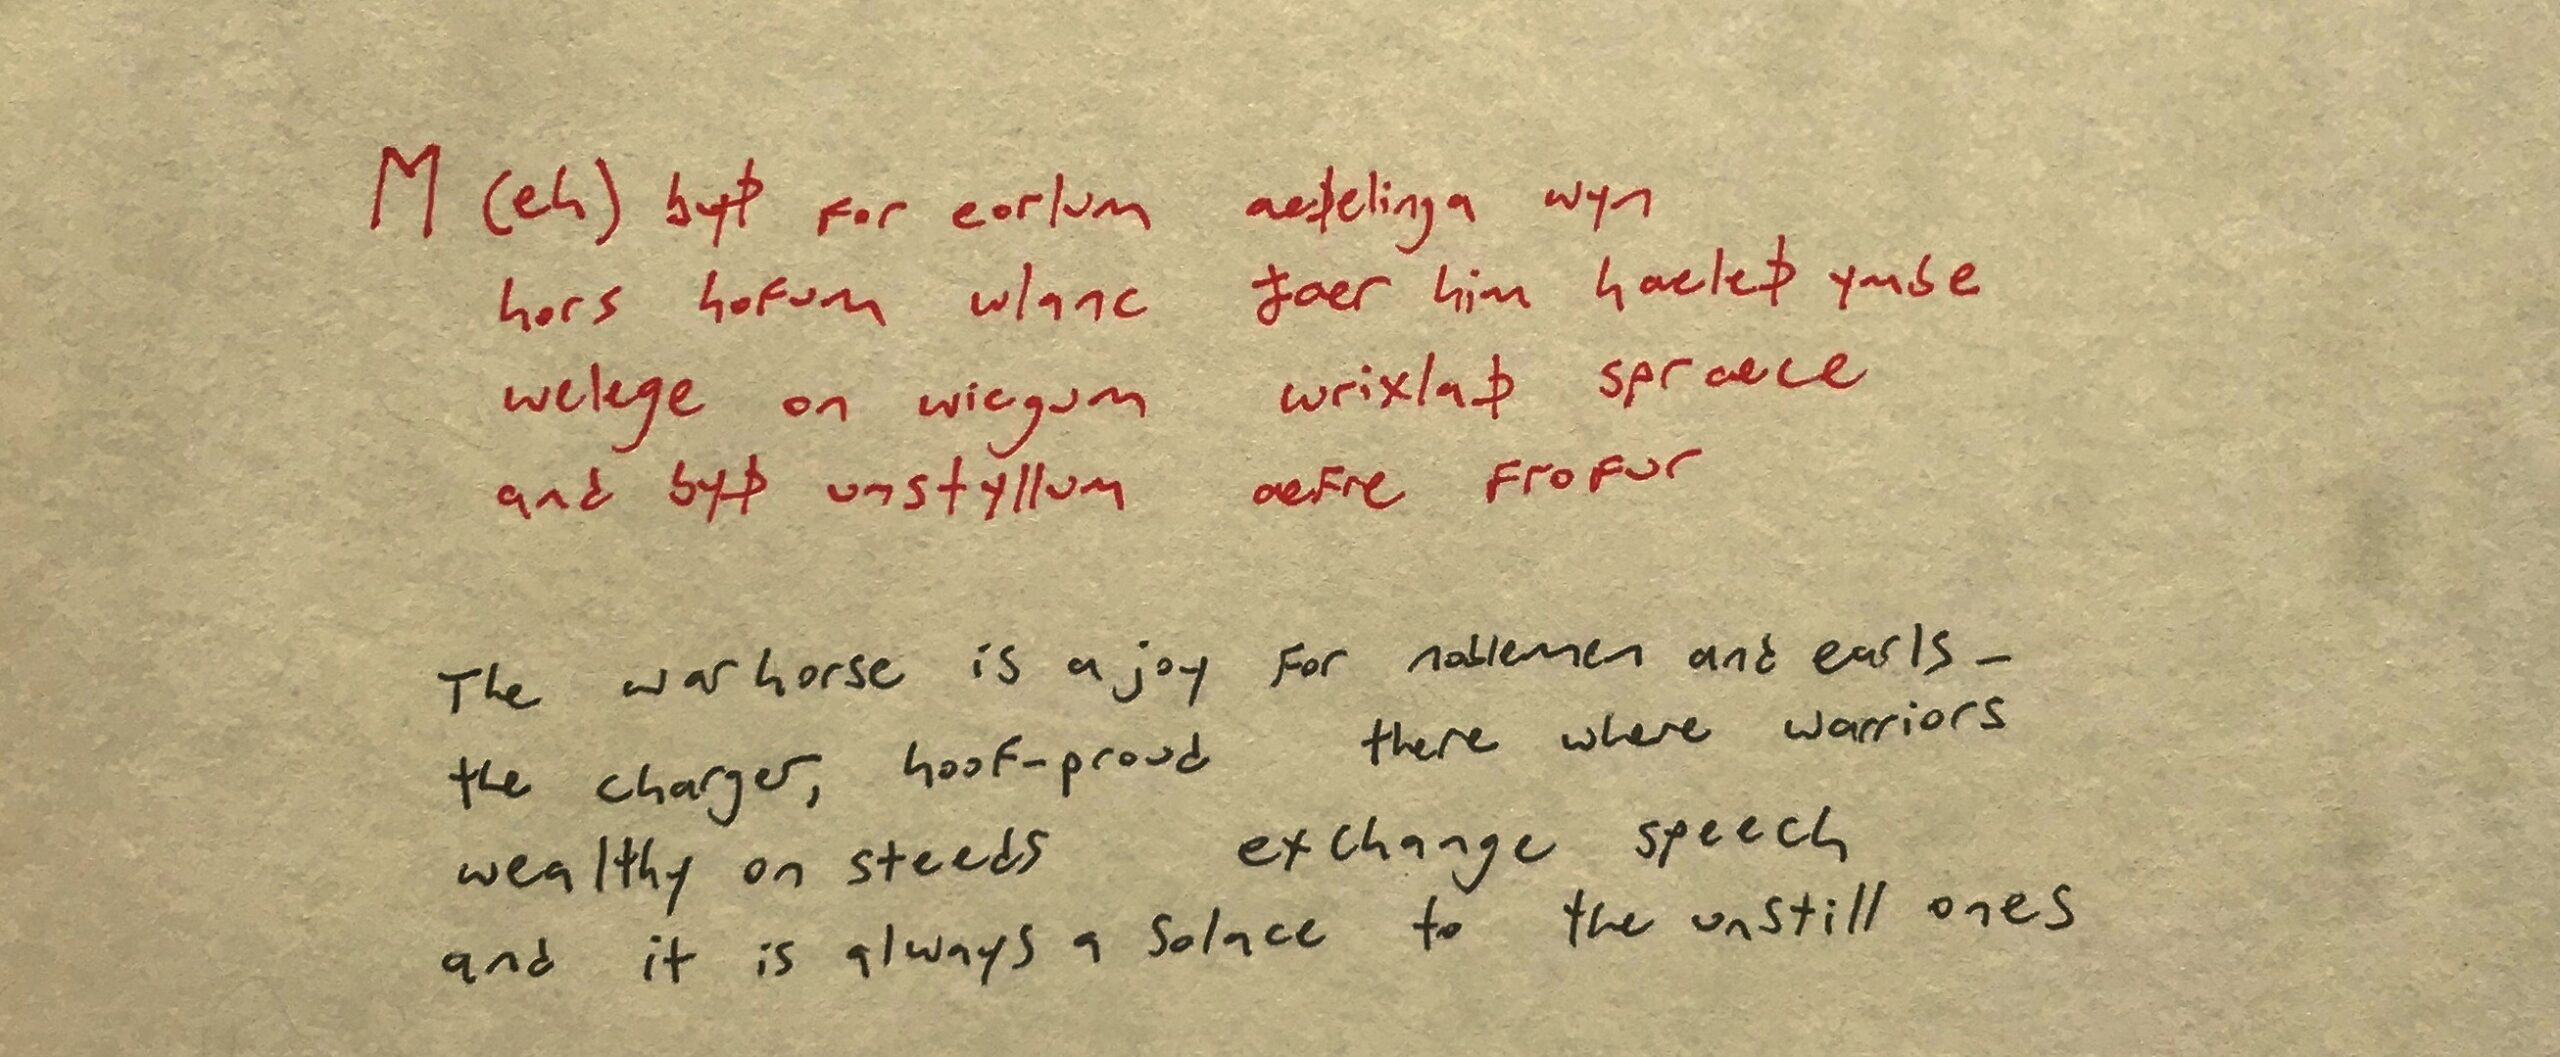 ᛖ (eh) byþ for eorlum aeþelinga wyn
hors hofum wlanc ðaer him haeleþ ymbe
welege on wicgum wrixlaþ spraece
and byþ unstyllum aefre frofur
The warhorse is a joy for noblemen and earls –
the charger, hoof-proud there where warriors
wealthy on steeds exchange speech
and it is always a solace to the unstill ones